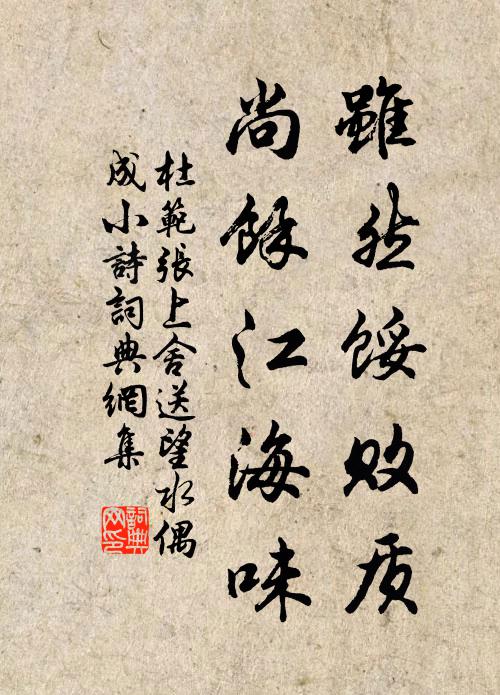 雖然餒敗质
尚餘江海味
杜範張上舍送望水偶
成小詩詞典網集
詞典网印